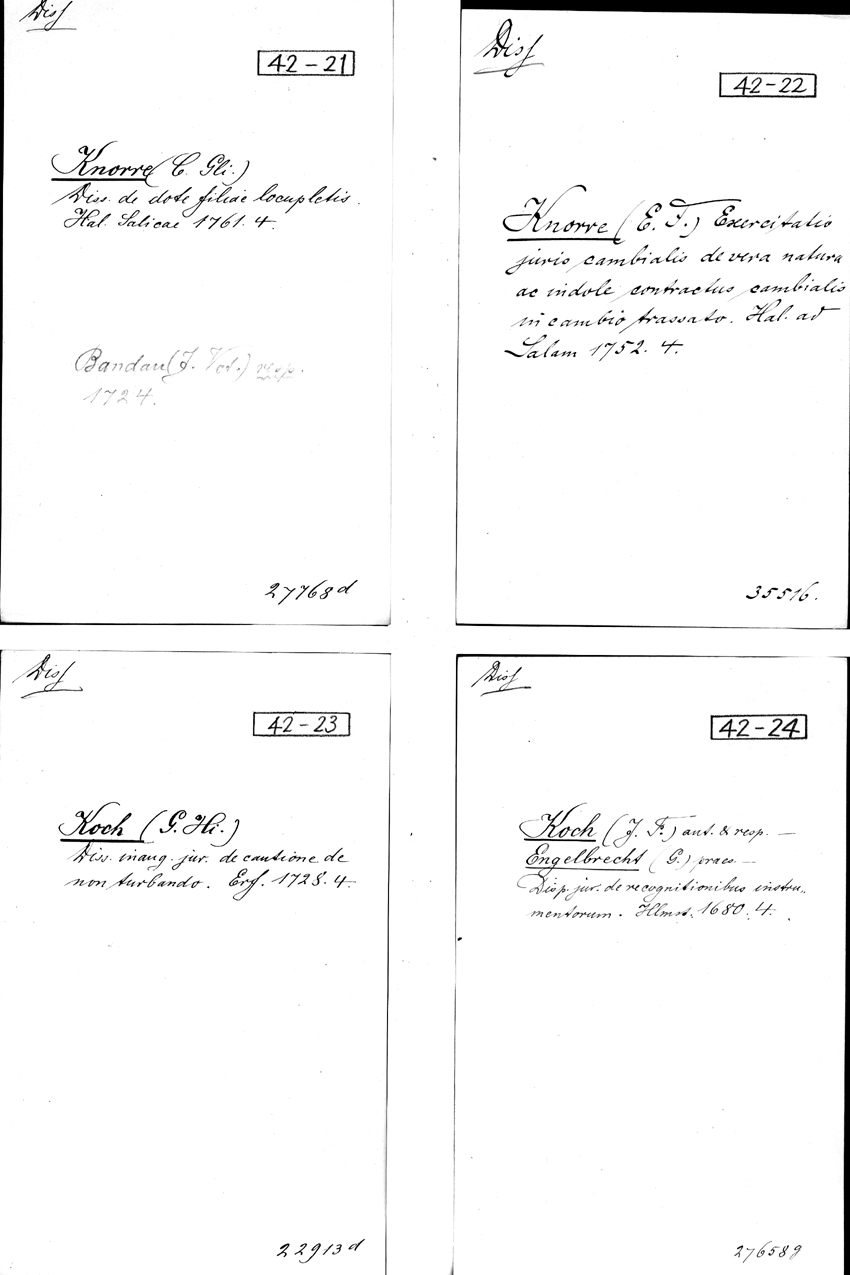 Diss
42-21
Knorre (C. Gli.)
Diss. de dote filiae locupletis.
Hal. Salicae 1761. 4.
Bandau (J. Vol.) resp.
1724.
27768d
Diss
42-22
Knorre (E. F.) Exercitatio
juris cambialis de vera natura
ac indole contractus cambialis
in cambio trassato. Hal. ad
Salam 1752. 4.
35516.
Diss
42-23
Koch (G. Hi.)
Diss. inaug. jur. de cautione de
non turbando. Erf. 1728. 4.
22913d
Diss
42-24
Koch (J. F.) aut. & resp. —
Engelbrecht (G.) praes. —
Disp. jur. de recognitionibus instru-
mentorum. Hlmst. 1680. 4.
27658g